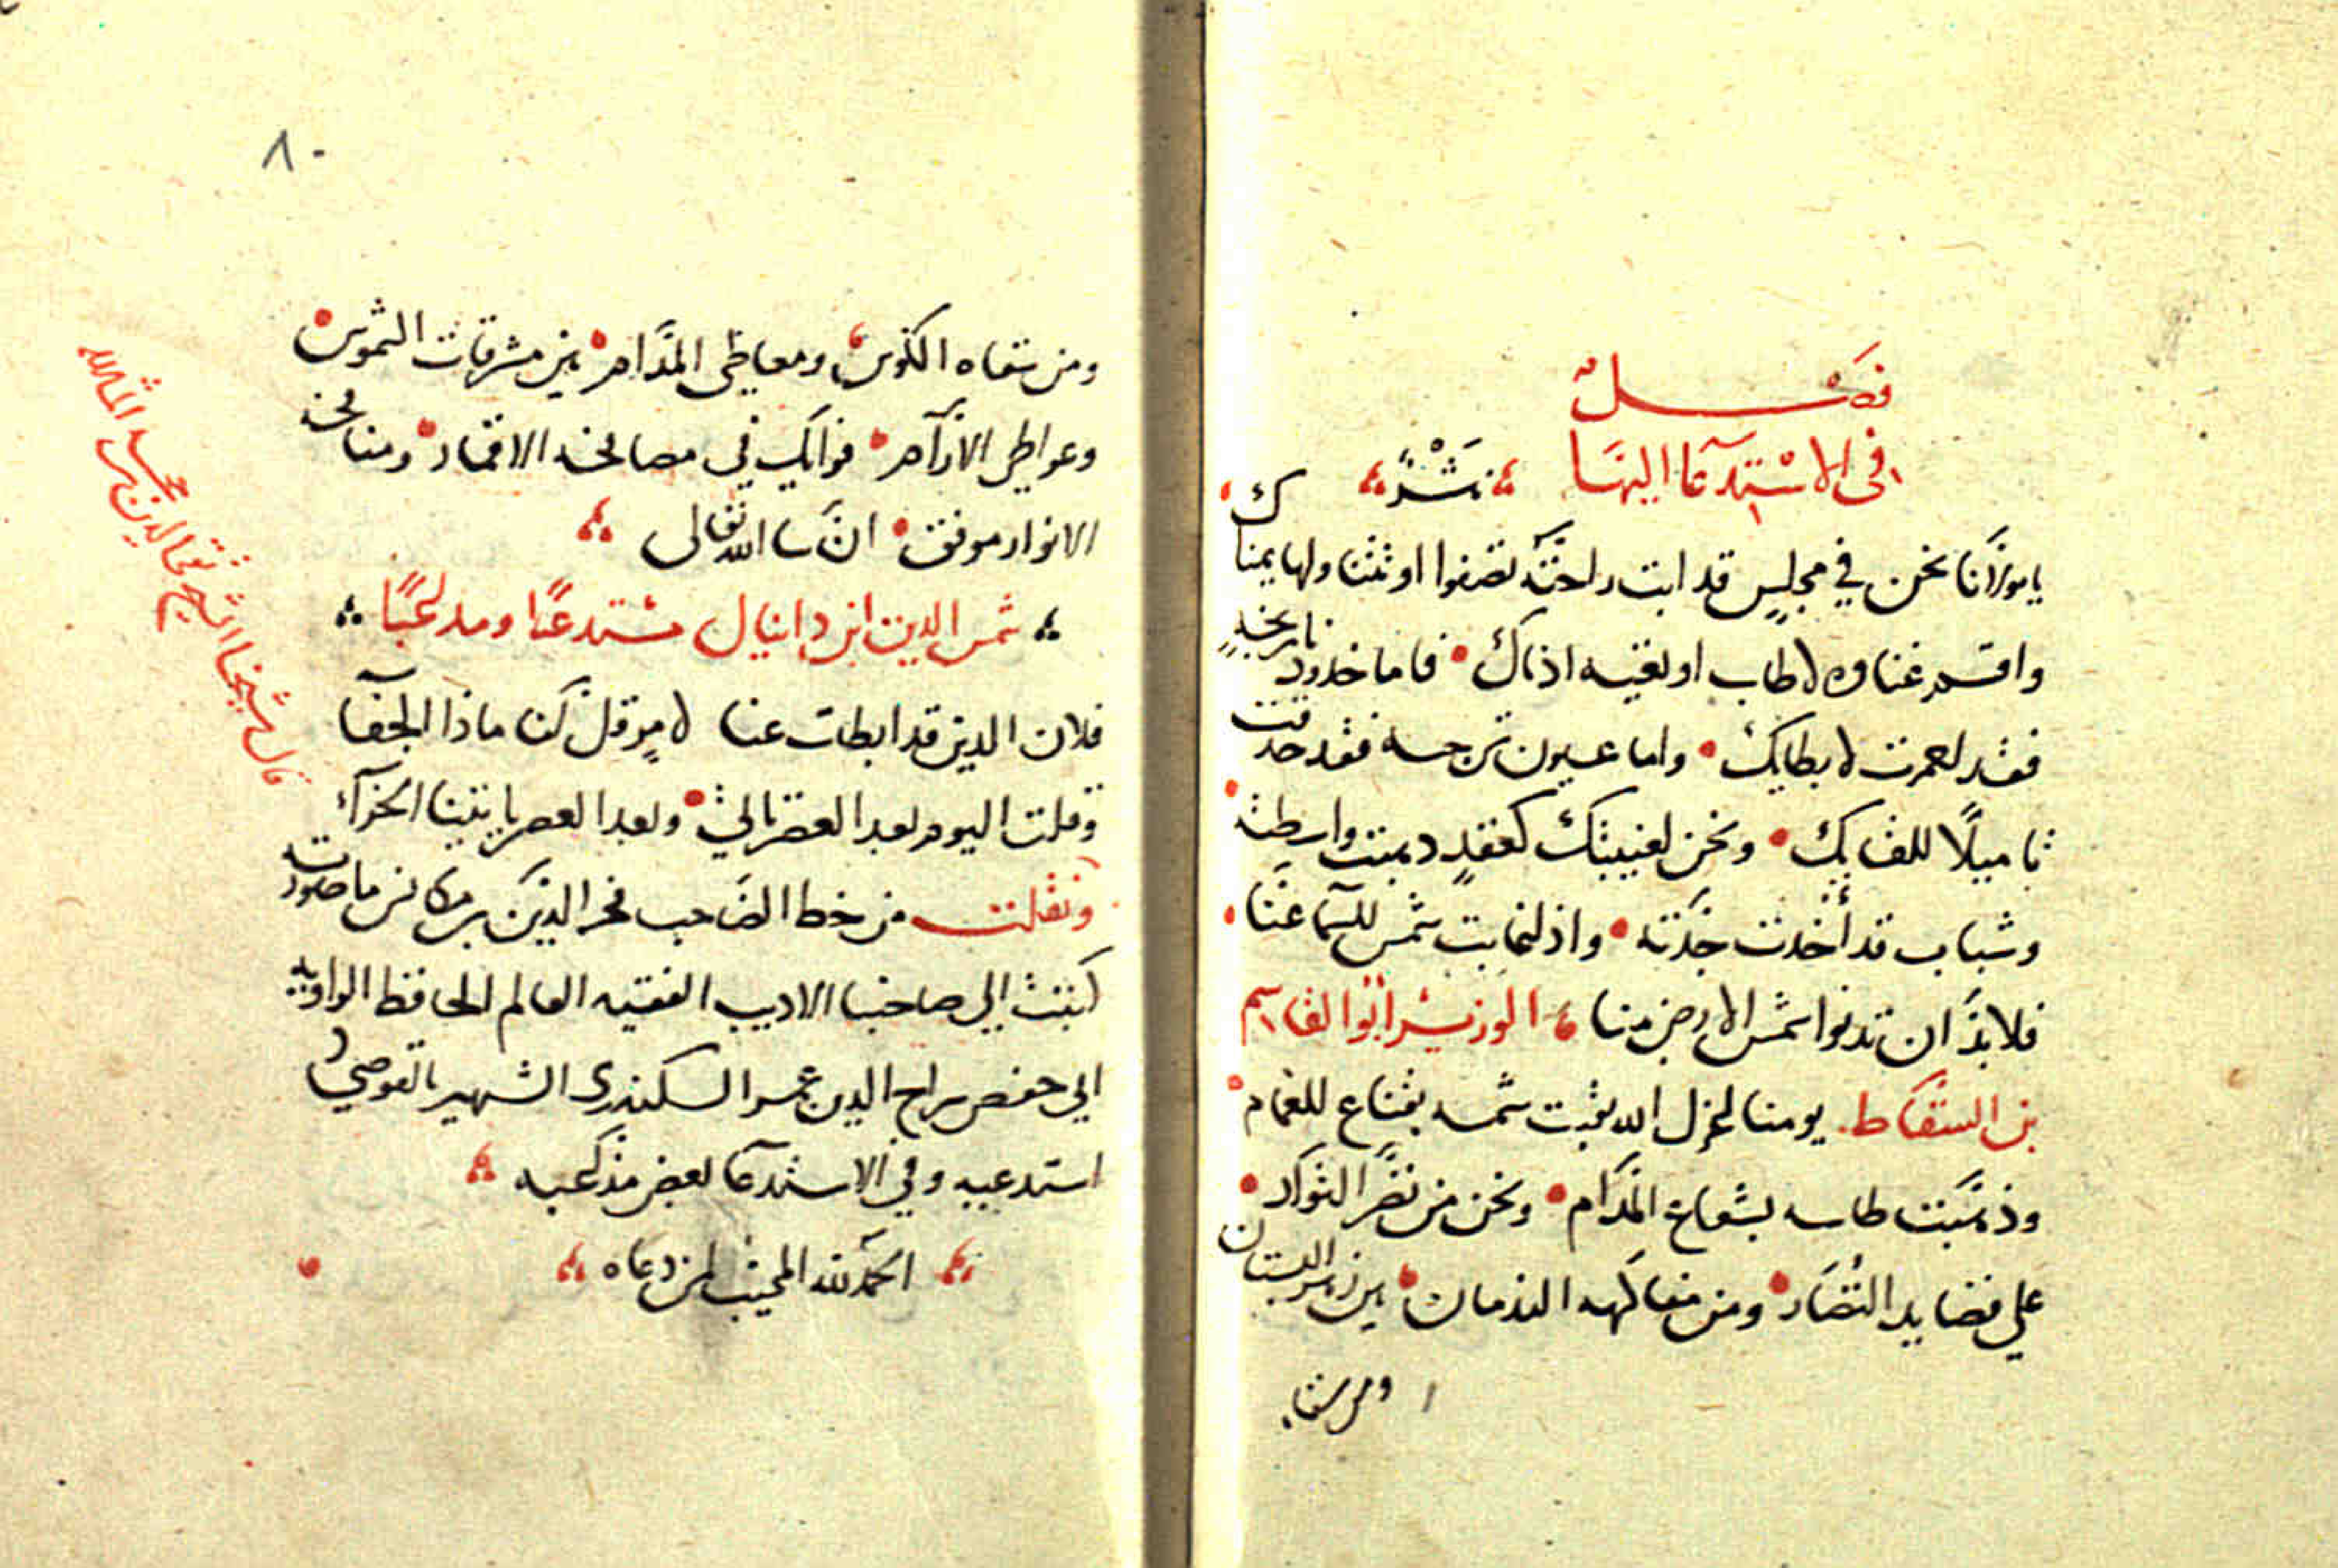 فصل
في الاستدعا اليها نثر
يا مولانا نحن في مجلس قد ابت راحته تصفوا او تتنا ولها يمناك
واقسم غناوه لا طاب او تعيه اذناك فاما خدود نارنجه
فقد احمرت لابطايك واما عيون نرجسه فقد حدقت
تاميلا للقايك ونحن لغيبتك كعقد ذهبت واسطته
وشباب قد أخذت جدته واذ لنا بت شمس السما عنا
فلا بد ان تدنوا شمس الارض منا الوزير ابوا القاسم
بن السقاط يومنا اعزك الله نقبت شمسه بقناع الغمام
وذهبت طاسه بشعاع المدام ونحن من نضر النوار
على نضايد النضار ومن مفاكهه الندمان بين زهر البستان
ومن سقاه
٨٠
ومن سقاه الكؤس ومعاطي المدام بين مشرقات الشموس
وعواطي الارآم فرايك في مصالحه الاقمار ومنافحه
الانوار موفق ان شا الله تعالى
شمس الدين ابن دانيال مستدعيا ومداعبا
فلان الدين قد ابطات عنا لامر قل لنا ماذا الجفا
وقلت اليوم بعد العصر ناتي وبعد العصر ياتينا الخرآء
ونقلت من خط الصاحب فخر الدين بن مكانس ما صورته
كتبت الى صاحبنا الاديب الفقيه العالم الحافظ الراويه
ابي حفص سراج الدين عمر السكندرى الشهير بالقوصي
استدعيه وفي الاستدعا بعض مداعبه
الحمد لله المجيب لمن دعاه
قال شيخنا الشيخ تقي الدين